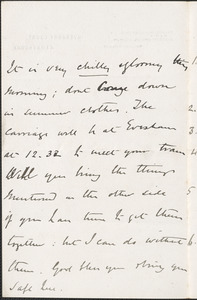 It is very chilly & gloomy this
morning; dont come down
in summer clothes. The
Carriage will be at Evesham
at 12.32 to meet your train
Will you bring the things
mentioned on the other side
if you have them to get them
together: but I can do without
them. God bless you & bring you
safe here.